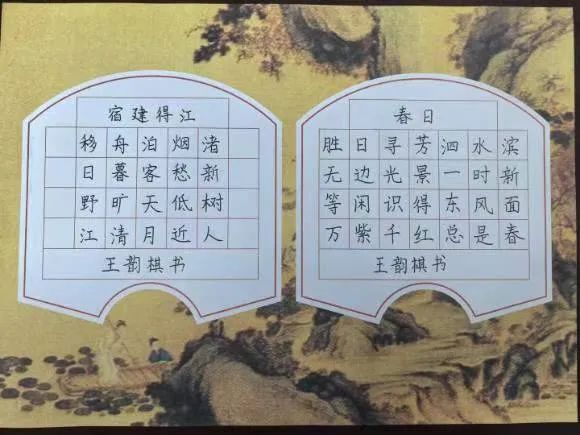 宿建得江
移舟泊烟渚
日暮客愁新
野旷天低树
江清月近人
王韵棋书
春日
胜日寻芳泗水滨
无边光景一时新
等闲识得东风面
万紫千红总是春
王韵棋书